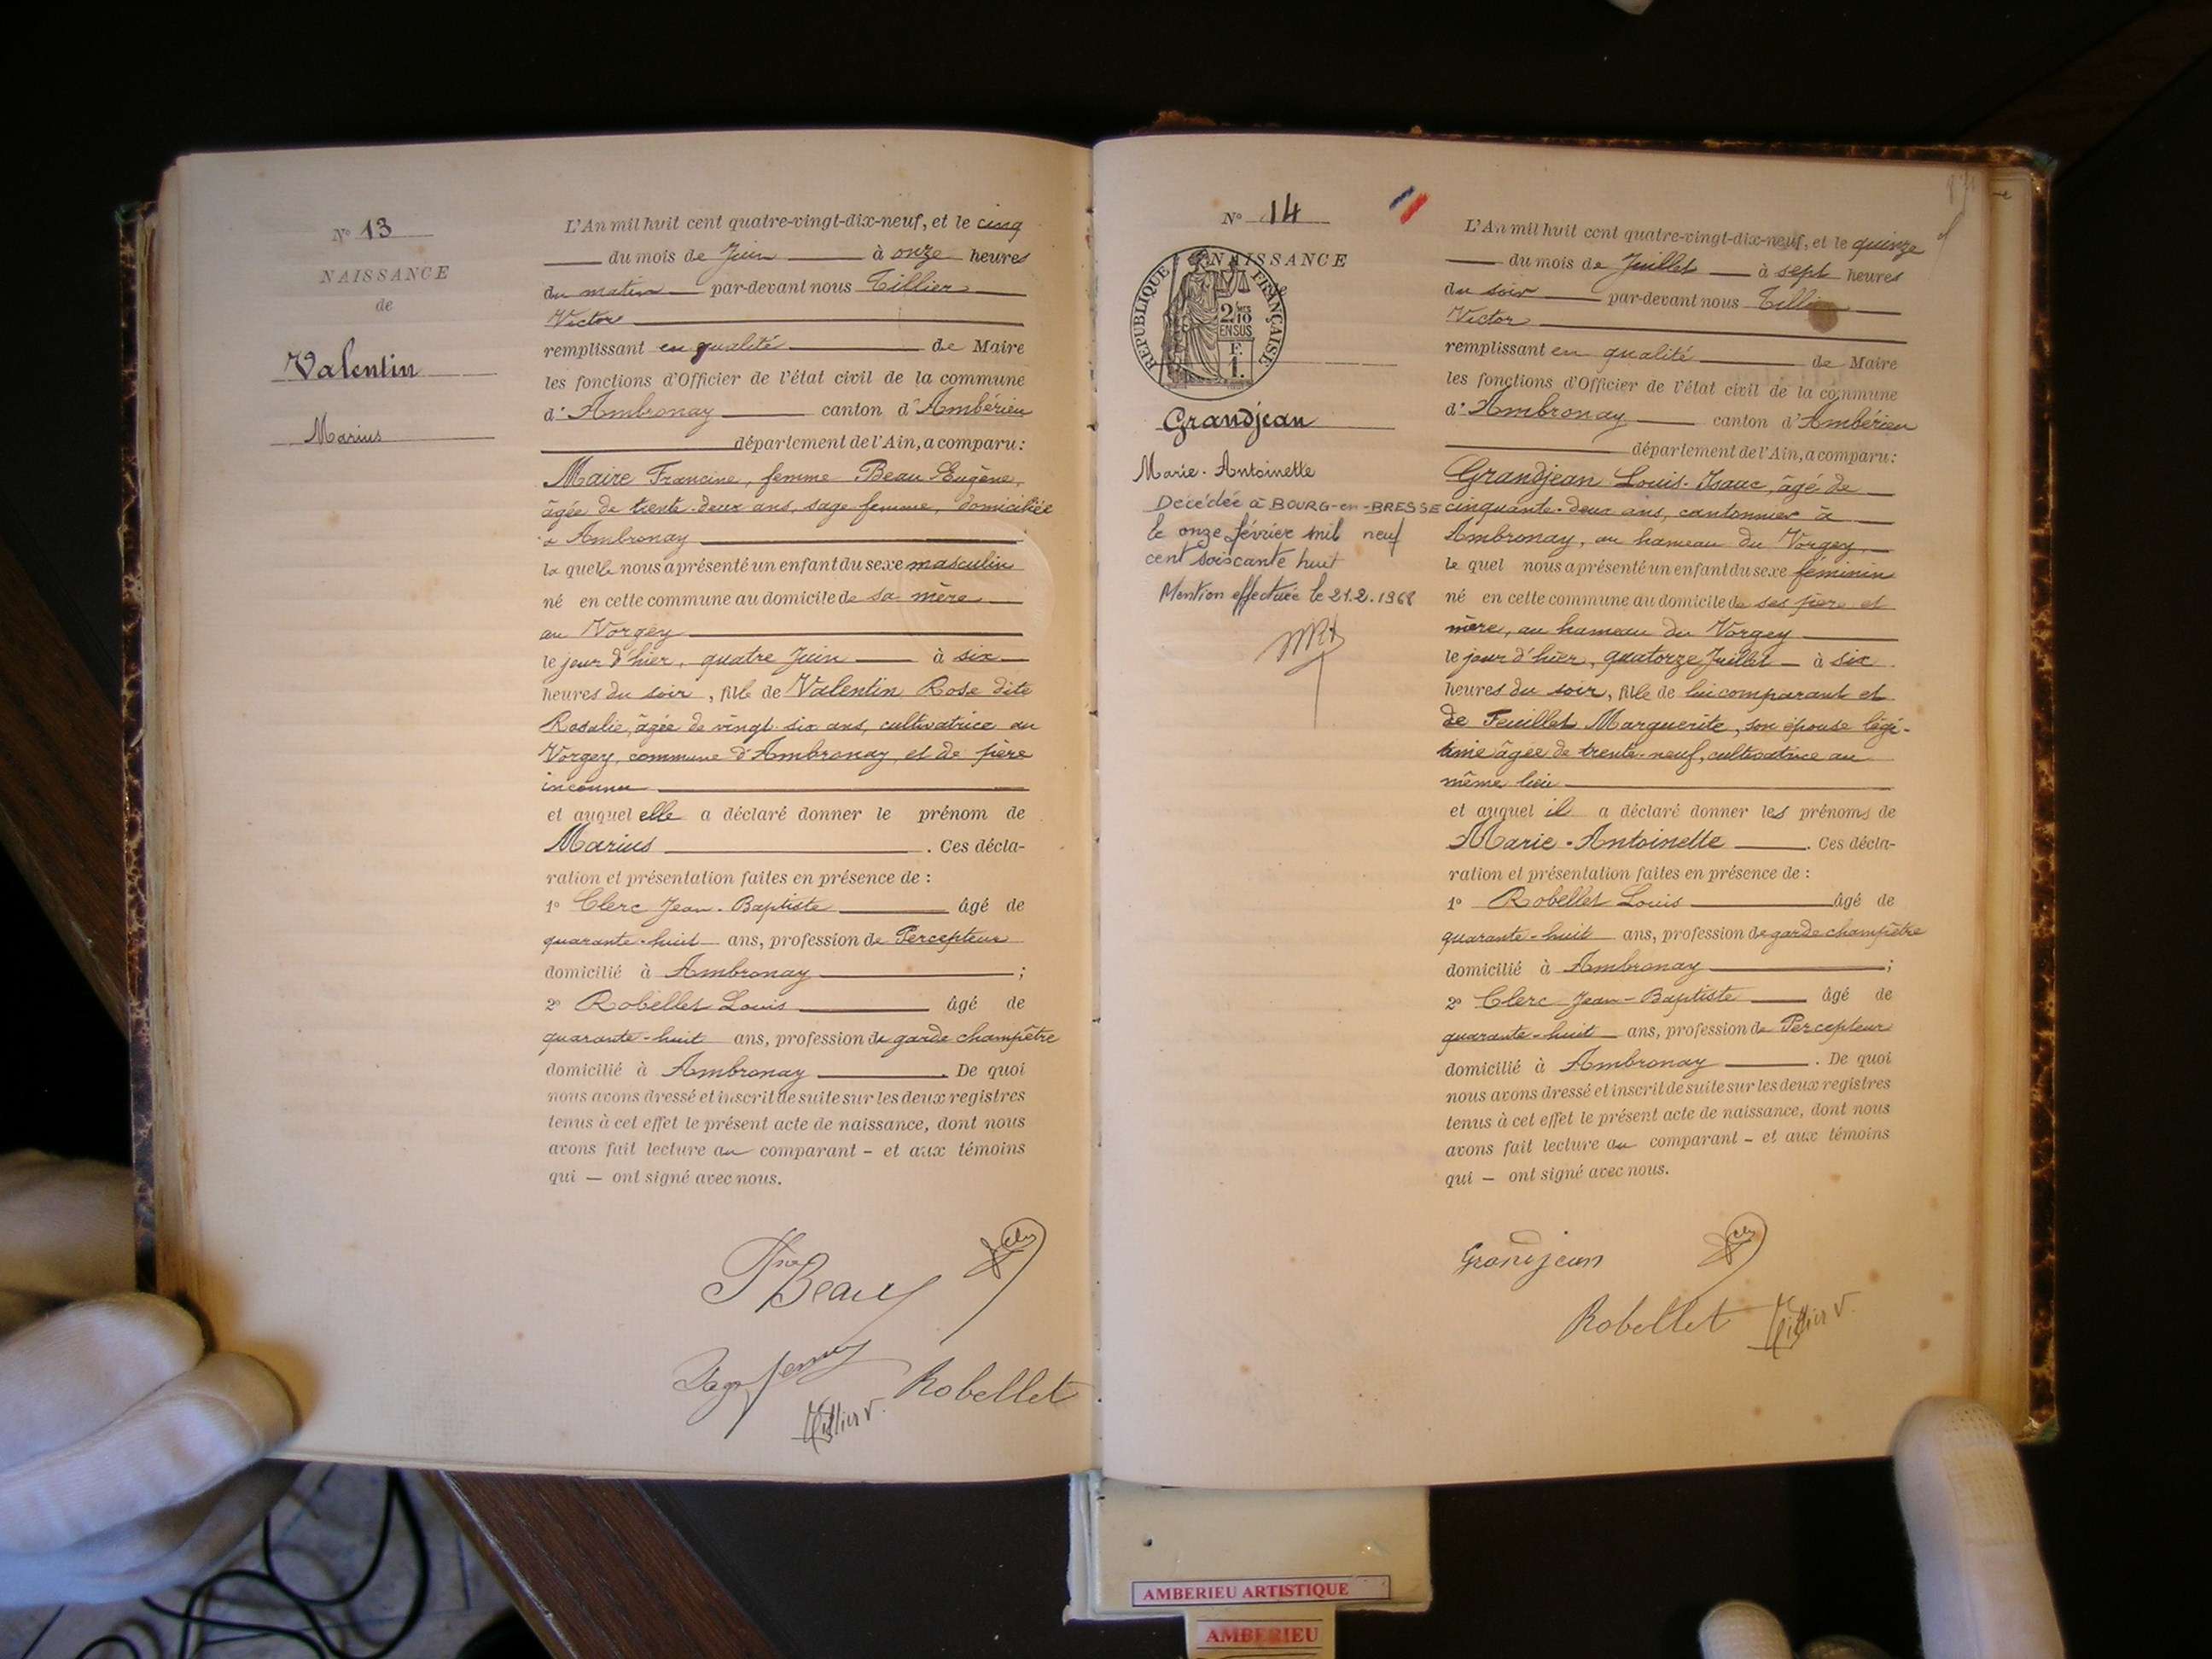 N° 13
NAISSANCE
de
Valentin
Marius
L'An mil huit cent quatre-vingt-dix-neuf, et le cinq
du mois de Juin à onze heures
du matin par-devant nous Tillier
Victor
remplissant en qualité de Maire
les fonctions d'Officier de l'état civil de la commune
d' Ambronay canton d'Ambérieu
département de l'Ain, a comparu:
Maire Francine, femme Beau Eugène,
âgée de trente-deux ans, sage femme, domiciliée
à Ambronay
la quelle nous a présenté un enfant du sexe masculin
né en cette commune au domicile de sa mère
au Vorgey
le jour d'hier, quatre Juin à six
heures du soir, fils de Valentin Rose dite
Rosalie, âgée de vingt-six ans, cultivatrice au
Vorgey, commune d'Ambronay, et de père
inconnu
et auquel elle a déclaré donner le prénom de
Marius. Ces décla-
ration et présentation faites en présence de :
1° Clerc Jean-Baptiste âgé de
quarante-huit ans, profession de Percepteur
domicilié à Ambronay ;
2° Robellet Louis âgé de
quarante-huit ans, profession de garde champêtre
domicilié à Ambronay. De quoi
nous avons dressé et inscrit de suite sur les deux registres
tenus à cet effet le présent acte de naissance, dont nous
avons fait lecture au comparant - et aux témoins
qui — ont signé avec nous.
Beau
Robellet
Tillier V.
N° 14
NAISSANCE
RÉPUBLIQUE FRANÇAISE
2/10
EN SUS
F.
1.
Grandjean
Marie-Antoinette
Décédée à BOURG-en-BRESSE
le onze février mil neuf
cent soixante huit
Mention effectuée le 21.2.1968
L'An mil huit cent quatre-vingt-dix-neuf, et le quinze
du mois de Juillet à sept heures
du soir par-devant nous Tillier
Victor
remplissant en qualité de Maire
les fonctions d'Officier de l'état civil de la commune
d' Ambronay canton d'Ambérieu
département de l'Ain, a comparu:
Grandjean Louis-Isaac, âgé de
cinquante-deux ans, cantonnier à
Ambronay, au hameau du Vorgey,
le quel nous a présenté un enfant du sexe féminin
né en cette commune au domicile de ses père et
mère, au hameau du Vorgey
le jour d'hier, quatorze Juillet - à six
heures du soir, fille de lui comparant et
de Feuillet Marguerite, son épouse légi-
time âgée de trente-neuf, cultivatrice au
même lieu
et auquel il a déclaré donner les prénoms de
Marie-Antoinette. Ces décla-
ration et présentation faites en présence de :
1° Robellet Louis âgé de
quarante-huit ans, profession de garde champêtre
domicilié à Ambronay ;
2° Clerc Jean-Baptiste âgé de
quarante-huit ans, profession de Percepteur
domicilié à Ambronay. De quoi
nous avons dressé et inscrit de suite sur les deux registres
tenus à cet effet le présent acte de naissance, dont nous
avons fait lecture au comparant - et aux témoins
qui - ont signé avec nous.
Grandjean
Robellet
Tillier V.
AMBERIEU ARTISTIQUE
AMBERIEU